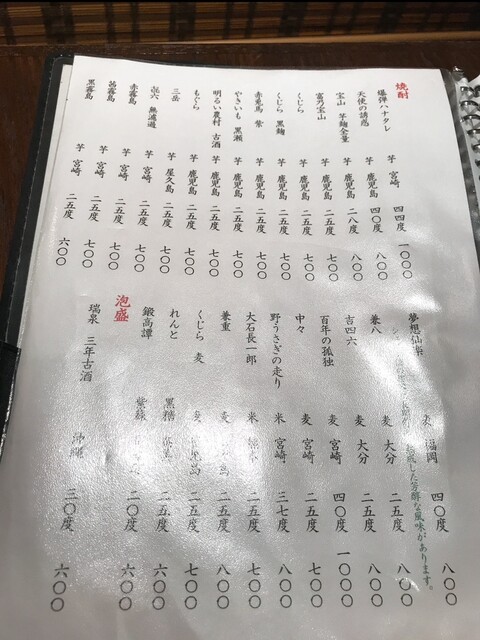 焼酎
爆弾ハナタレ 芋 宮崎 四四度 一〇〇〇
天使の誘惑 芋 鹿児島 四〇度 八〇〇
宝山 芋麹全量 芋 鹿児島 二八度 八〇〇
富乃宝山 芋 鹿児島 二五度 七〇〇
くじら 芋 鹿児島 二五度 七〇〇
くじら 黒麹 芋 鹿児島 二五度 七〇〇
赤兎馬 紫 芋 鹿児島 二五度 七〇〇
やきいも 黒瀬 芋 鹿児島 二五度 七〇〇
明るい農村 古酒 芋 鹿児島 二五度 七〇〇
もぐら 芋 鹿児島 二五度 七〇〇
三岳 芋 屋久島 二五度 七〇〇
㐂六 無濾過 芋 宮崎 二五度 七〇〇
赤霧島 芋 宮崎 二五度 七〇〇
茜霧島 芋 宮崎 二五度 七〇〇
黒霧島 芋 宮崎 二五度 六〇〇
夢想仙楽 麦 福岡 四〇度 八〇〇
熟成した芳醇な風味があります。
兼八 麦 大分 二五度 八〇〇
吉四六 麦 大分 二五度 八〇〇
百年の孤独 麦 宮崎 四〇度 一〇〇〇
中々 麦 宮崎 二五度 七〇〇
野うさぎの走り 米 宮崎 三七度 八〇〇
大石長一郎 米 二五度 七〇〇
兼重 麦 島 二五度 八〇〇
くじら 麦 麦 島 二五度 七〇〇
れんと 黒糖 二五度 六〇〇
鍛高譚 紫蘇 二〇度 六〇〇
泡盛
瑞泉 三年古酒 沖縄 三〇度 六〇〇